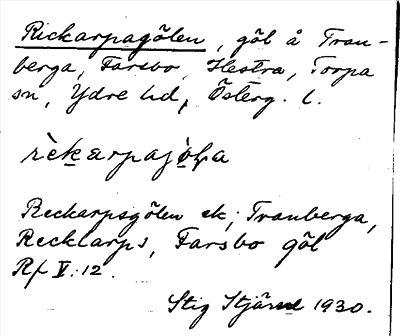 Rickarpagölen, göl å Tran-
berga, Farsbo, Hestra, Torpa
sn, Ydre hd, Österg. l.
Reckarpsgölen ek, Tranberga,
Recklarps, Farsbo göl
Rf V: 12.
Stig Stjärne 1930.